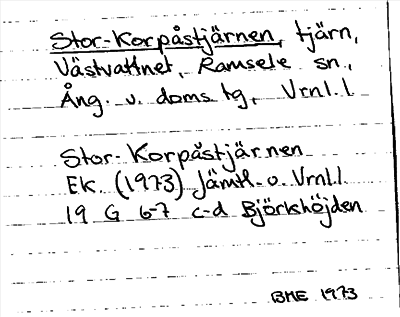 Stor-Korpåstjärnen, tjärn,
Västvattnet, Ramsele sn.,
Ång. v. doms tg, Vrnl.l.
Stor-Korpåstjärnen
EK. (1973) Jämtl. o. Vrnl.l.
19 G 6-7 c-d Björkhöjden
BME 1973